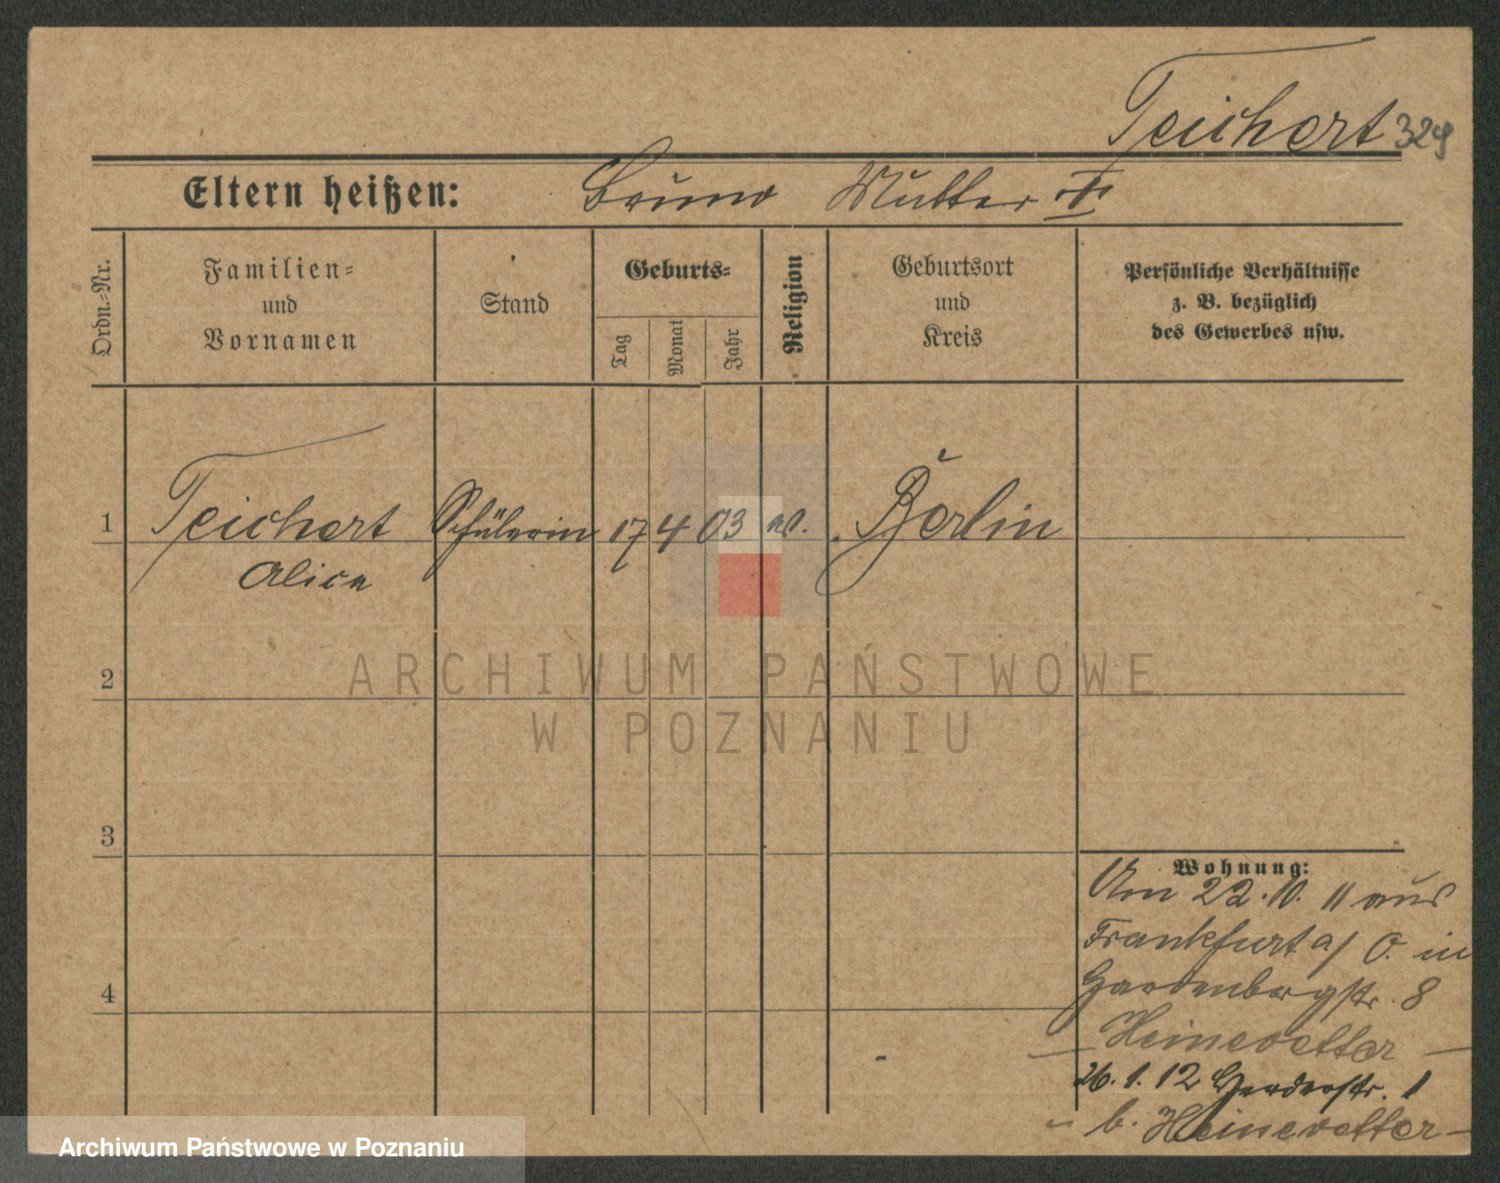 Teichert 324
Eltern heißen: Bruno Mutter †
Ordn.-Nr.
Familien-
und
Vornamen
Stand
Geburts-
Tag
Monat
Jahr
Religion
Geburtsort
und
Kreis
Persönliche Verhältnisse
z. B. bezüglich
des Gewerbes usw.
1 Teichert Schülerin 17 4 03 ev. Berlin
Alice
2
3
4
Wohnung:
Am 22.10. 11 aus
Frankfurt a/ O. in
Hardenbergstr. 8
Heinevetter
26. 1. 12 1
b. Heinevetter
ARCHIWUM PAŃSTWOWE
W POZNANIU
Archiwum Państwowe w Poznaniu